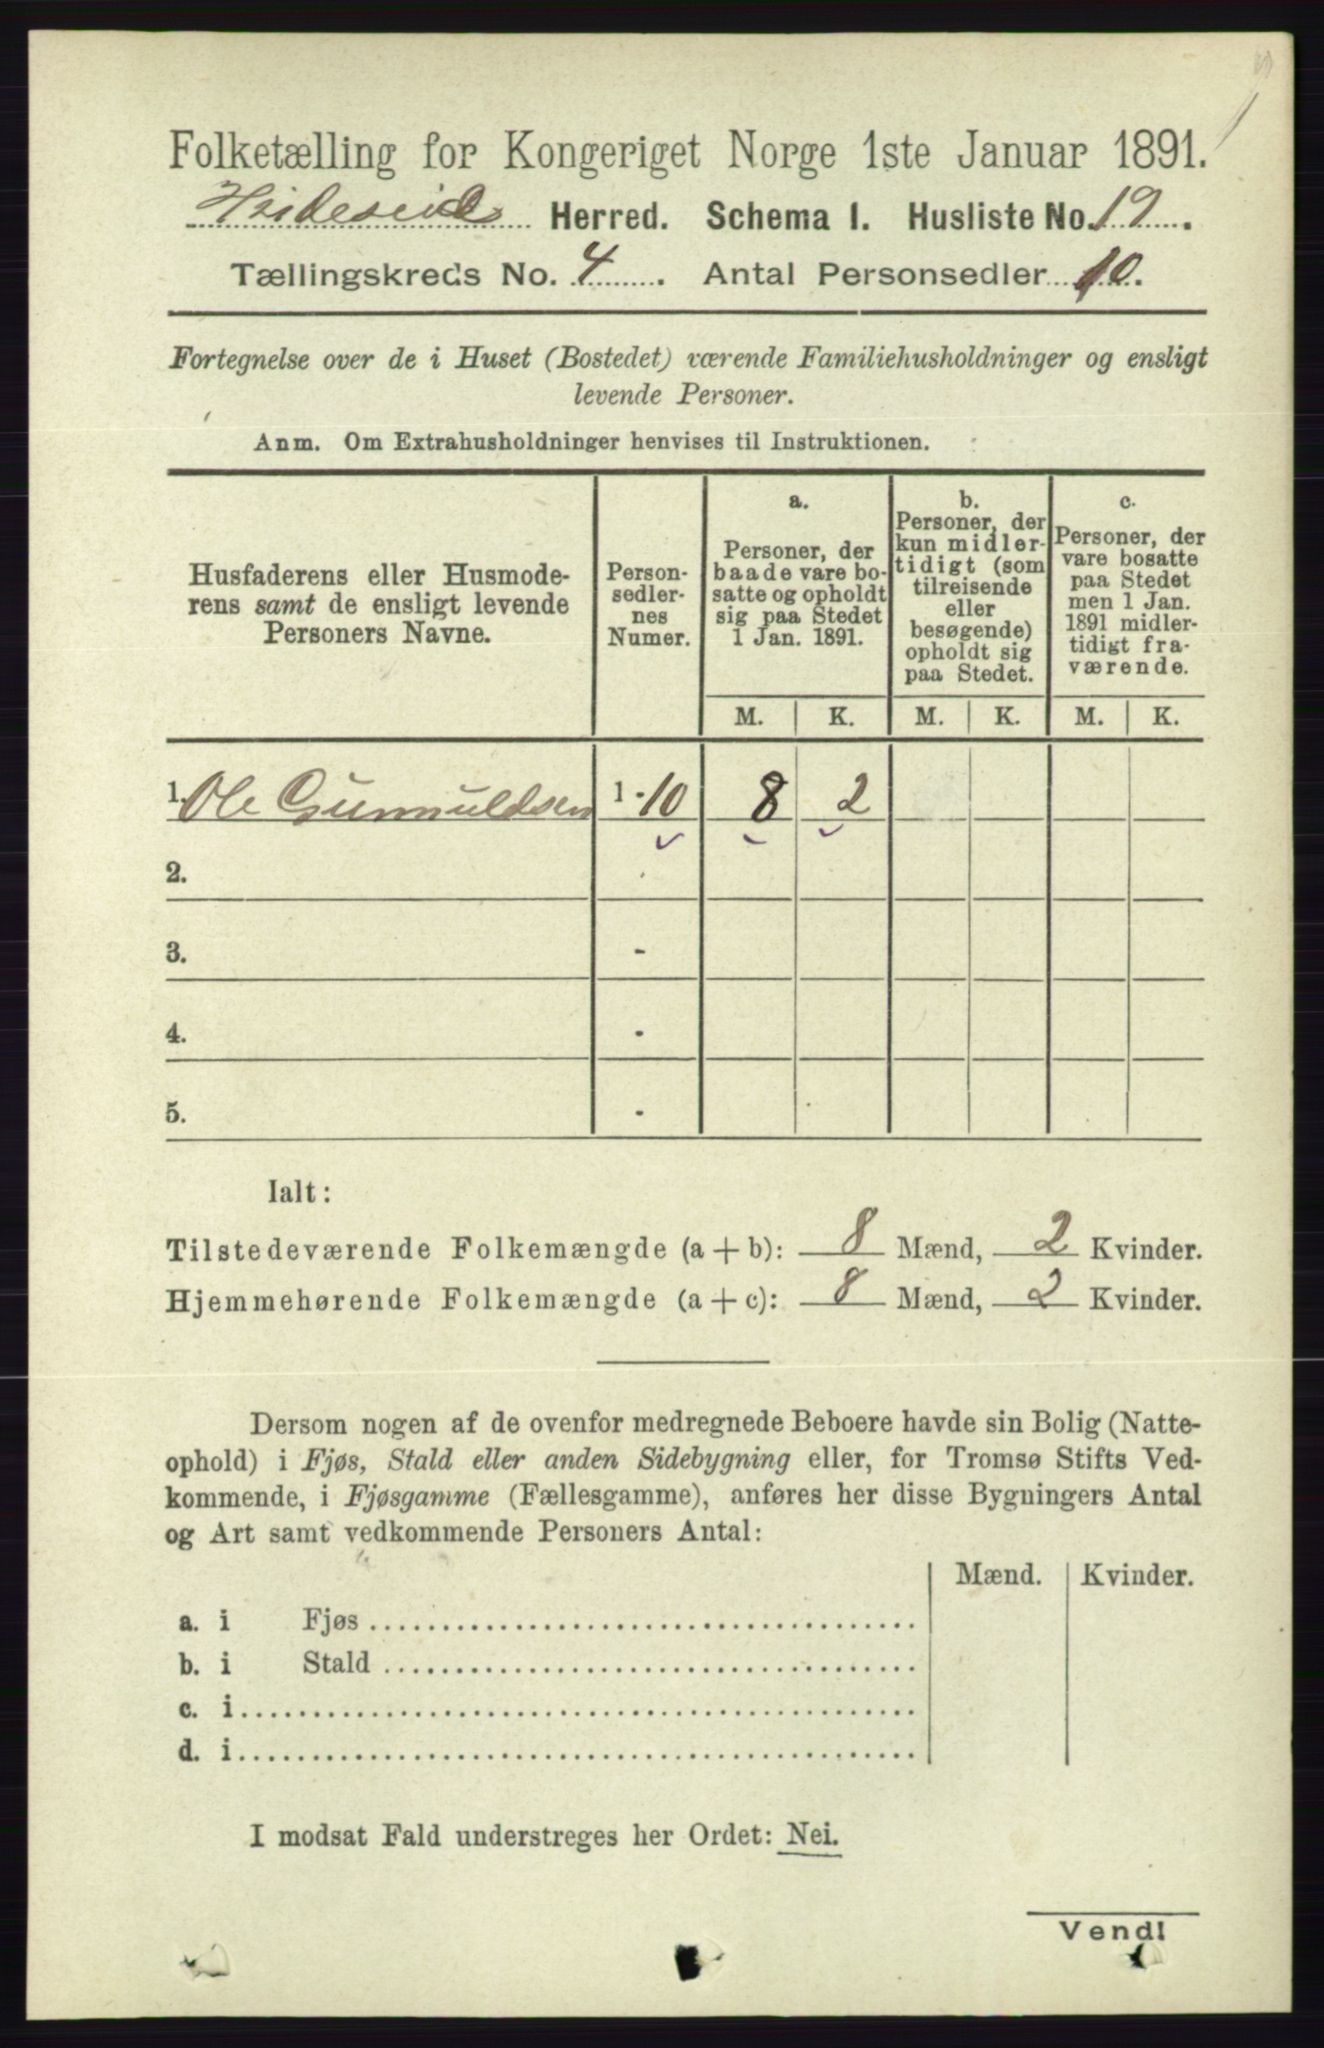 Folketælling for Kongeriget Norge 1ste Januar 1891.
Hvideseid Herred. Schema I. Husliste No. 19.
Tællingskreds No. 4. Antal Personsedler 10.
Fortegnelse over de i Huset (Bostedet) værende Familiehusholdninger og ensligt
levende Personer.
Anm. Om Extrahusholdninger henvises til Instruktionen.
Husfaderens eller Husmode-
rens samt de ensligt levende
Personers Navne.
Person-
sedler-
nes
Numer.
a.
Personer, der
baade vare bo-
satte og opholdt
sig paa Stedet
1 Jan. 1891.
b.
Personer, der
kun midler-
tidigt (som
tilreisende
eller
besøgende)
opholdt sig
paa Stedet.
c.
Personer, der
vare bosatte
paa Stedet
men 1 Jan.
1891 midler-
tidigt fra-
værende.
M. K. M. K. M. K.
1. Ole Gunnuldsen 1 - 10 8 2
2.
3. -
4. -
5. -
Ialt:
Tilstedeværende Folkemængde (a + b): 8 Mænd, 2 Kvinder.
Hjemmehørende Folkemængde (a + c): 8 Mænd, 2 Kvinder.
Dersom nogen af de ovenfor medregnede Beboere havde sin Bolig (Natte-
ophold) i Fjøs, Stald eller anden Sidebygning eller, for Tromsø Stifts Ved-
kommende, i Fjøsgamme (Fællesgamme), anføres her disse Bygningers Antal
og Art samt vedkommende Personers Antal:
Mænd. Kvinder.
a. i Fjøs
b. i Stald
c. i
d. i
I modsat Fald understreges her Ordet: Nei.
Vend!